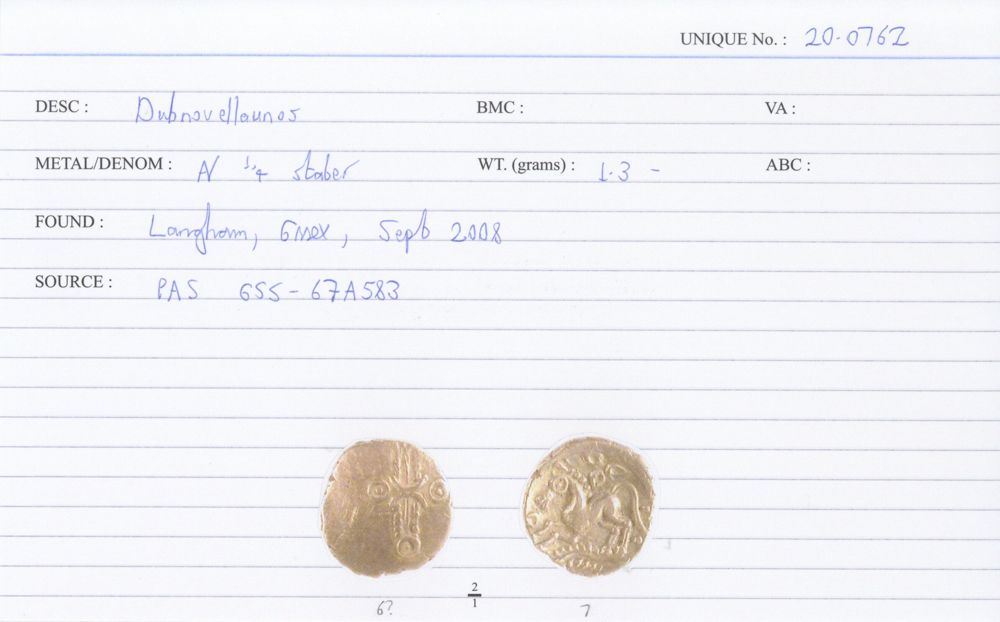 UNIQUE No. : 20-0762
DESC : Dubnovellaunos BMC : VA :
METAL/DENOM : N 1/4 stater WT. (grams) : 1.3 - ABC :
FOUND : Langham, Essex, Sept 2008
SOURCE : PAS ESS-67A583
2/1
6? 7